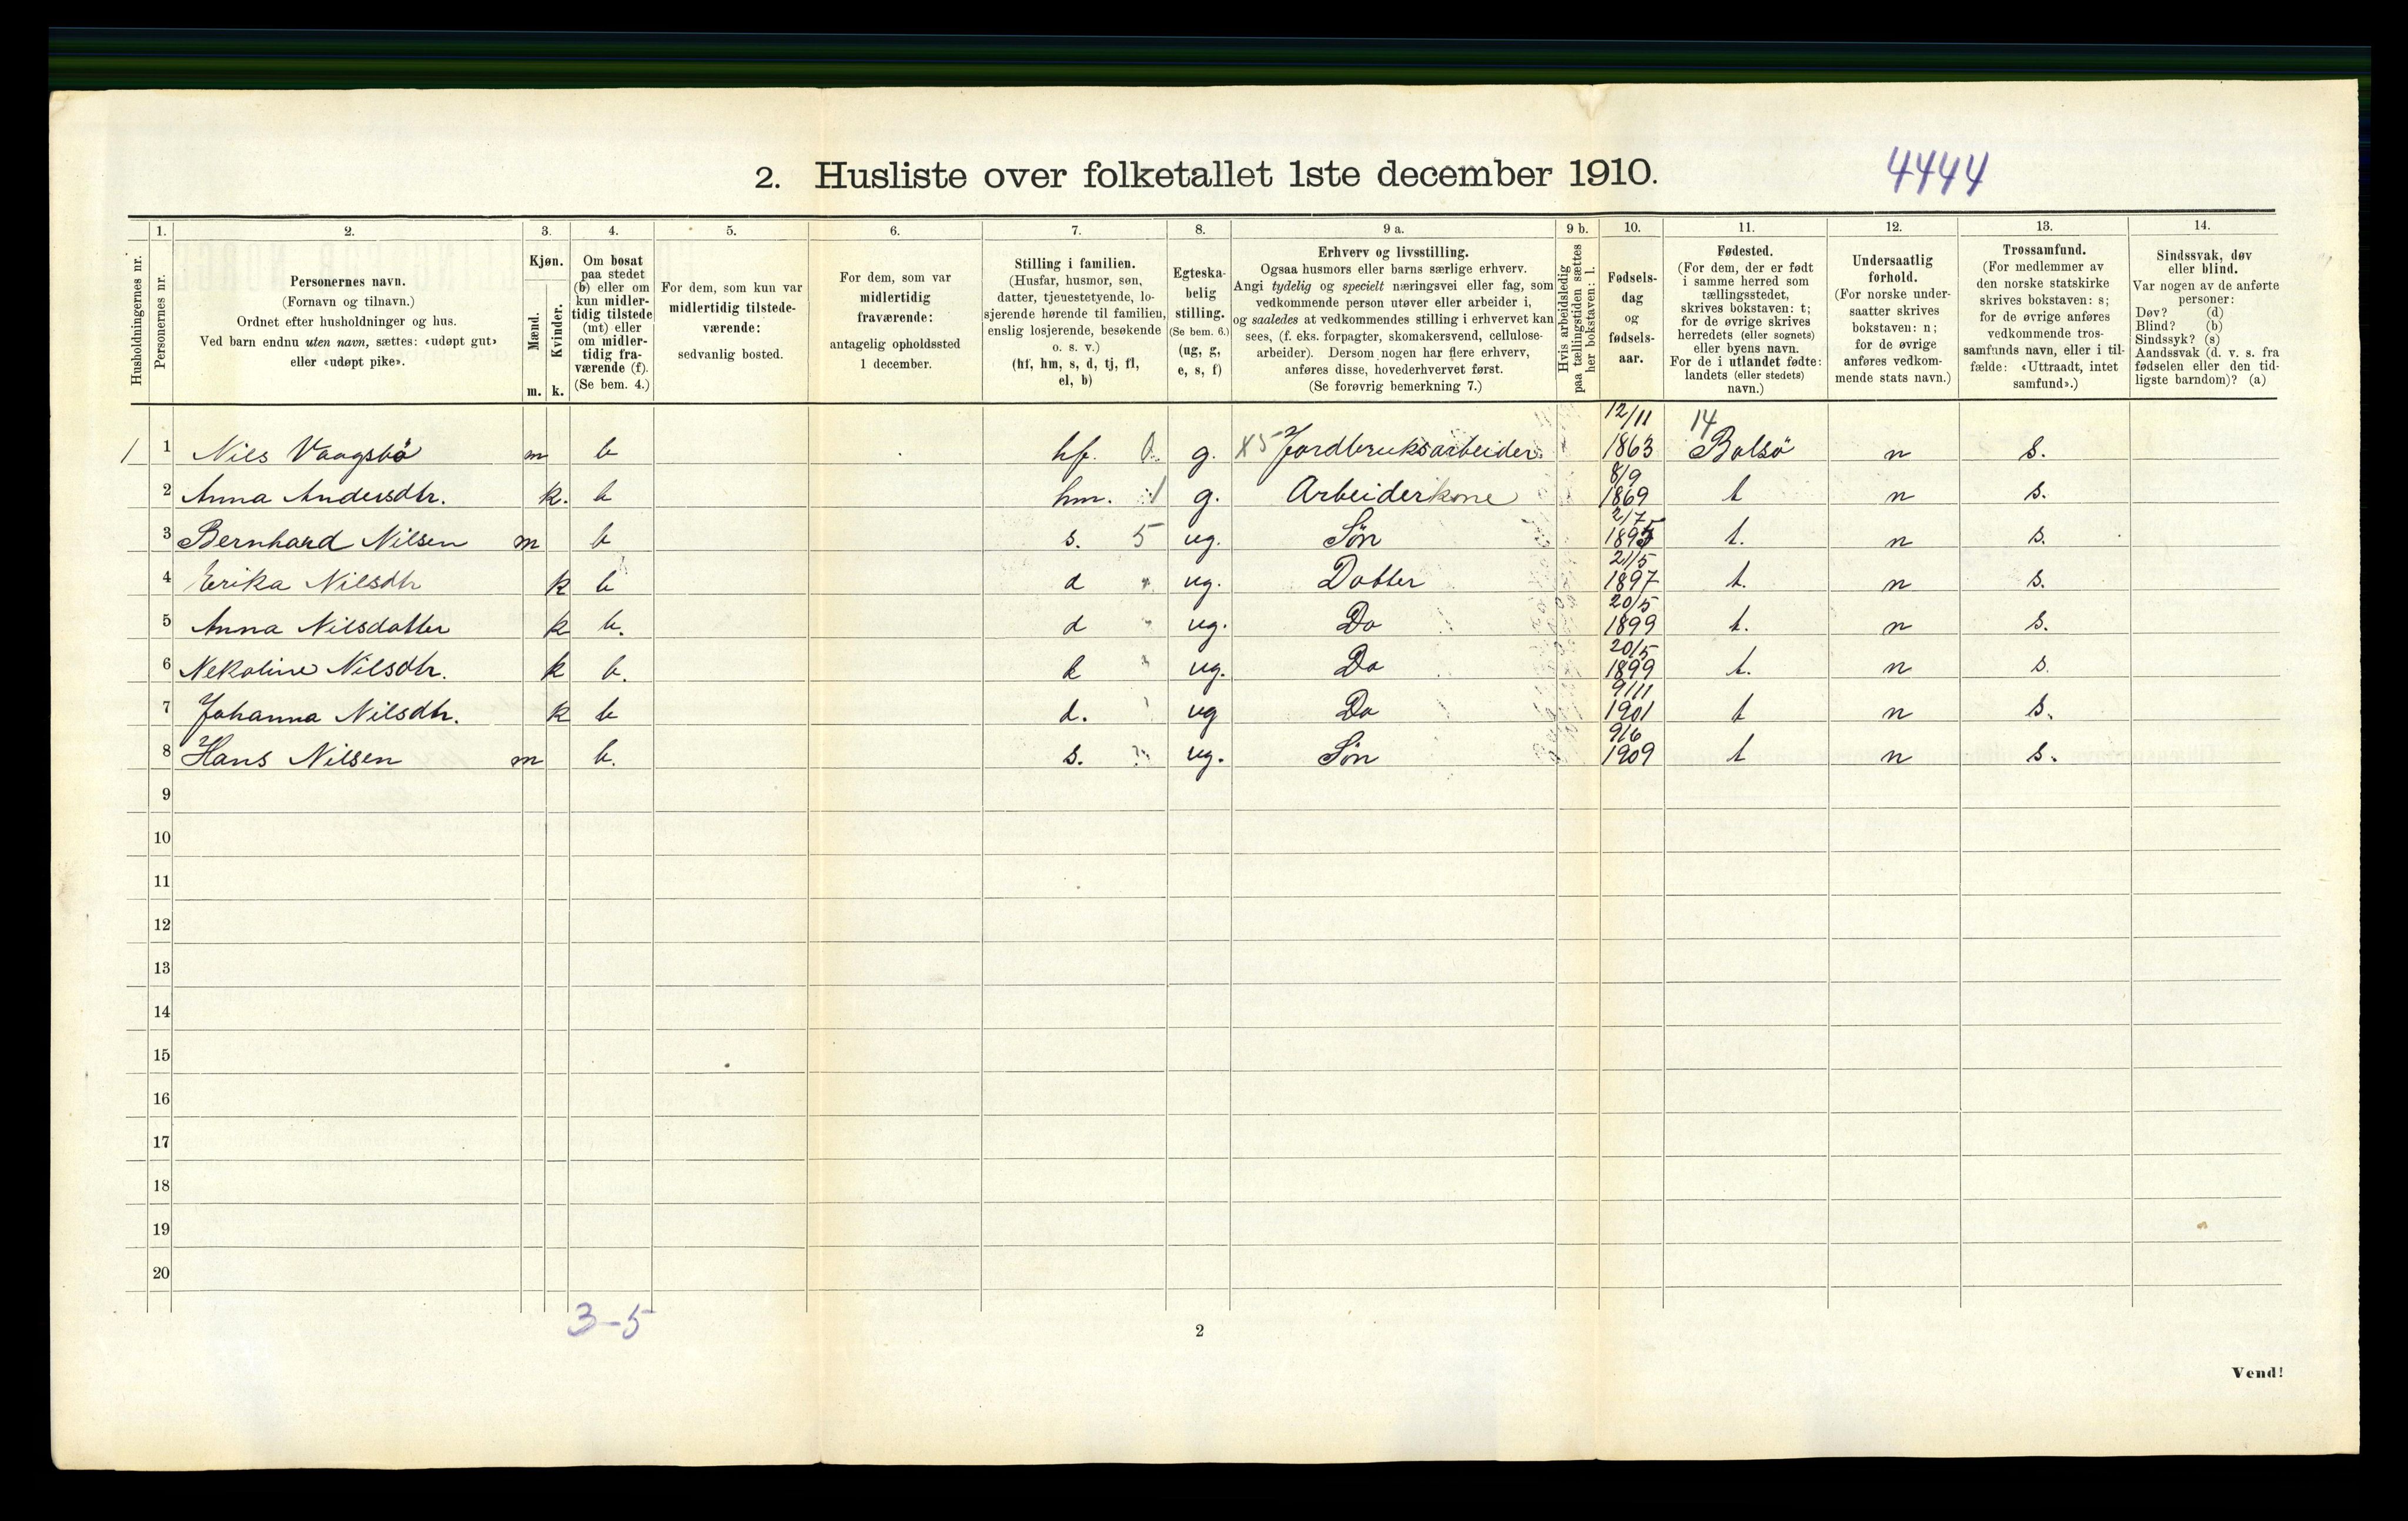 2. Husliste over folketallet 1ste december 1910.
4444
Husholdningernes nr.
1.
Personernes nr.
2.
Personernes navn.
(Fornavn og tilnavn.)
Ordnet efter husholdninger og hus.
Ved barn endnu uten navn, sættes: «udøpt gut»
eller «udøpt pike».
3.
Kjøn.
Mænd.
m.
Kvinder.
k.
4.
Om bosat
paa stedet
(b) eller om
kun midler-
tidig tilstede
(mt) eller
om midler-
tidig fra-
værende (f).
(Se bem. 4.)
5.
For dem, som kun var
midlertidig tilstede-
værende:
sedvanlig bosted.
6.
For dem, som var
midlertidig
fraværende:
antagelig opholdssted
1 december.
7.
Stilling i familien.
(Husfar, husmor, søn,
datter, tjenestetyende, lo-
sjerende hørende til familien,
enslig losjerende, besøkende
o. s. v.)
(hf, hm, s, d, tj, fl,
el, b)
8.
Egteska-
belig
stilling.
(Se bem. 6.)
(ug, g,
e, s, f)
9 a.
Erhverv og livsstilling.
Ogsaa husmors eller barns særlige erhverv.
Angi tydelig og specielt næringsvei eller fag, som
vedkommende person utøver eller arbeider i,
og saaledes at vedkommendes stilling i erhvervet kan
sees, (f. eks. forpagter, skomakersvend, cellulose-
arbeider). Dersom nogen har flere erhverv,
anføres disse, hovederhvervet først.
(Se forøvrig bemerkning 7.)
9 b.
Hvis arbeidsledig
paa tællingstiden sættes
her bokstaven: l.
10.
Fødsels-
dag
og
fødsels-
aar.
11.
Fødested.
(For dem, der er født
i samme herred som
tællingsstedet,
skrives bokstaven: t;
for de øvrige skrives
herredets (eller sognets)
eller byens navn.
For de i utlandet fødte:
landets (eller stedets)
navn.)
12.
Undersaatlig
forhold.
(For norske under-
saatter skrives
bokstaven: n;
for de øvrige
anføres vedkom-
mende stats navn.)
13.
Trossamfund.
(For medlemmer av
den norske statskirke
skrives bokstaven: s;
for de øvrige anføres
vedkommende tros-
samfunds navn, eller i til-
fælde: «Uttraadt, intet
samfund».)
14.
Sindssvak, døv
eller blind.
Var nogen av de anførte
personer:
Døv? (d)
Blind? (b)
Sindssyk? (s)
Aandssvak (d. v. s. fra
fødselen eller den tid-
ligste barndom)? (a)
1 1 Nils Vaagsbö m b hf. 0 g. X5 Jordbruksarbeider 12/11 1863 14 Bolsö n s.
2 Anna Andersdtr. k. b hm. 1 g. Arbeiderkone 8/9 1869 t n s.
3 Bernhard Nilsen m b s. 5 ug. Søn 2/7 1895 t. n s.
4 Erika Nilsdtr k b d " ug. Datter 21/5 1897 t. n s.
5 Anna Nilsdatter k b. d " ug. Do 20/5 1899 t. n s.
6 Nekoline Nilsdtr. k b. d " ug. Do 20/5 1899 t. n s.
7 Johanna Nilsdtr. k b d. ug Do 9/11 1901 t n s.
8 Hans Nilsen m b. s. ug. Søn 9/6 1909 t n s.
9
10
11
12
13
14
15
16
17
18
19
20
3-5
2
Vend!